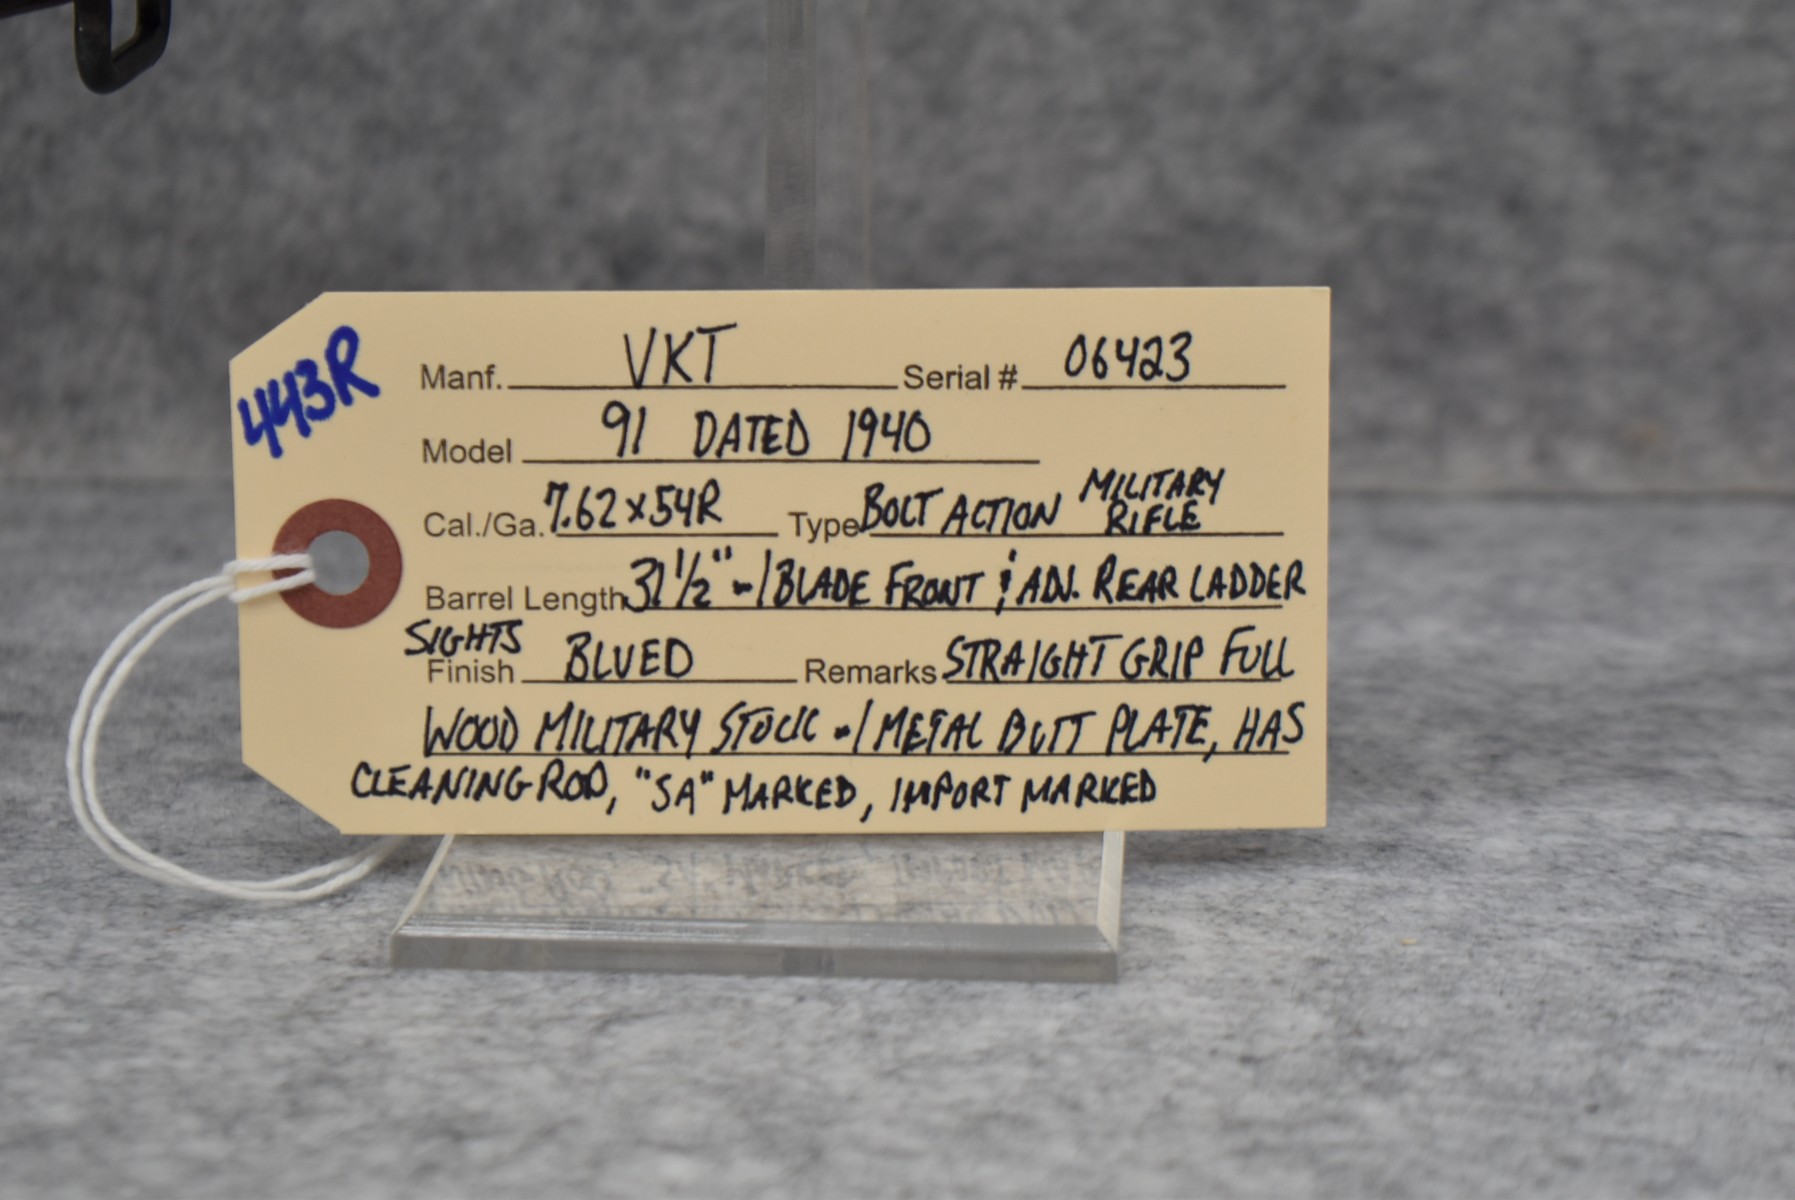 443R
Manf. VKT Serial # 06423
Model 91 DATED 1940
Cal./Ga. 7.62x54R Type BOLT ACTION MILITARY RIFLE
Barrel Length 31 1/2" w/ BLADE FRONT & ADJ. REAR LADDER
SIGHTS
Finish BLUED Remarks STRAIGHT GRIP FULL
WOOD MILITARY STOCK w/ METAL BUTT PLATE, HAS
CLEANING ROD, "SA" MARKED, IMPORT MARKED